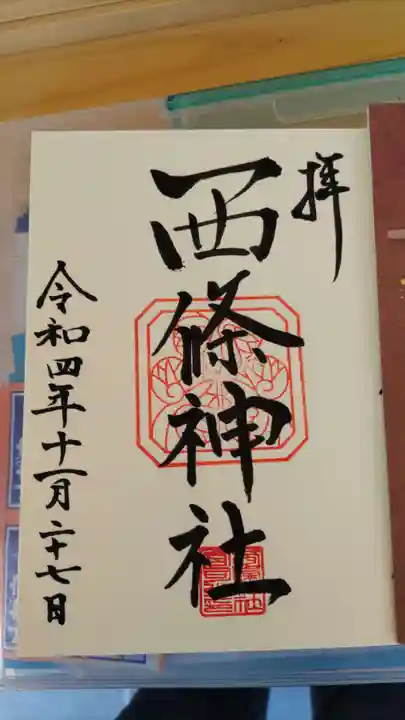 拝
西條神社
令和四年十一月二十七日